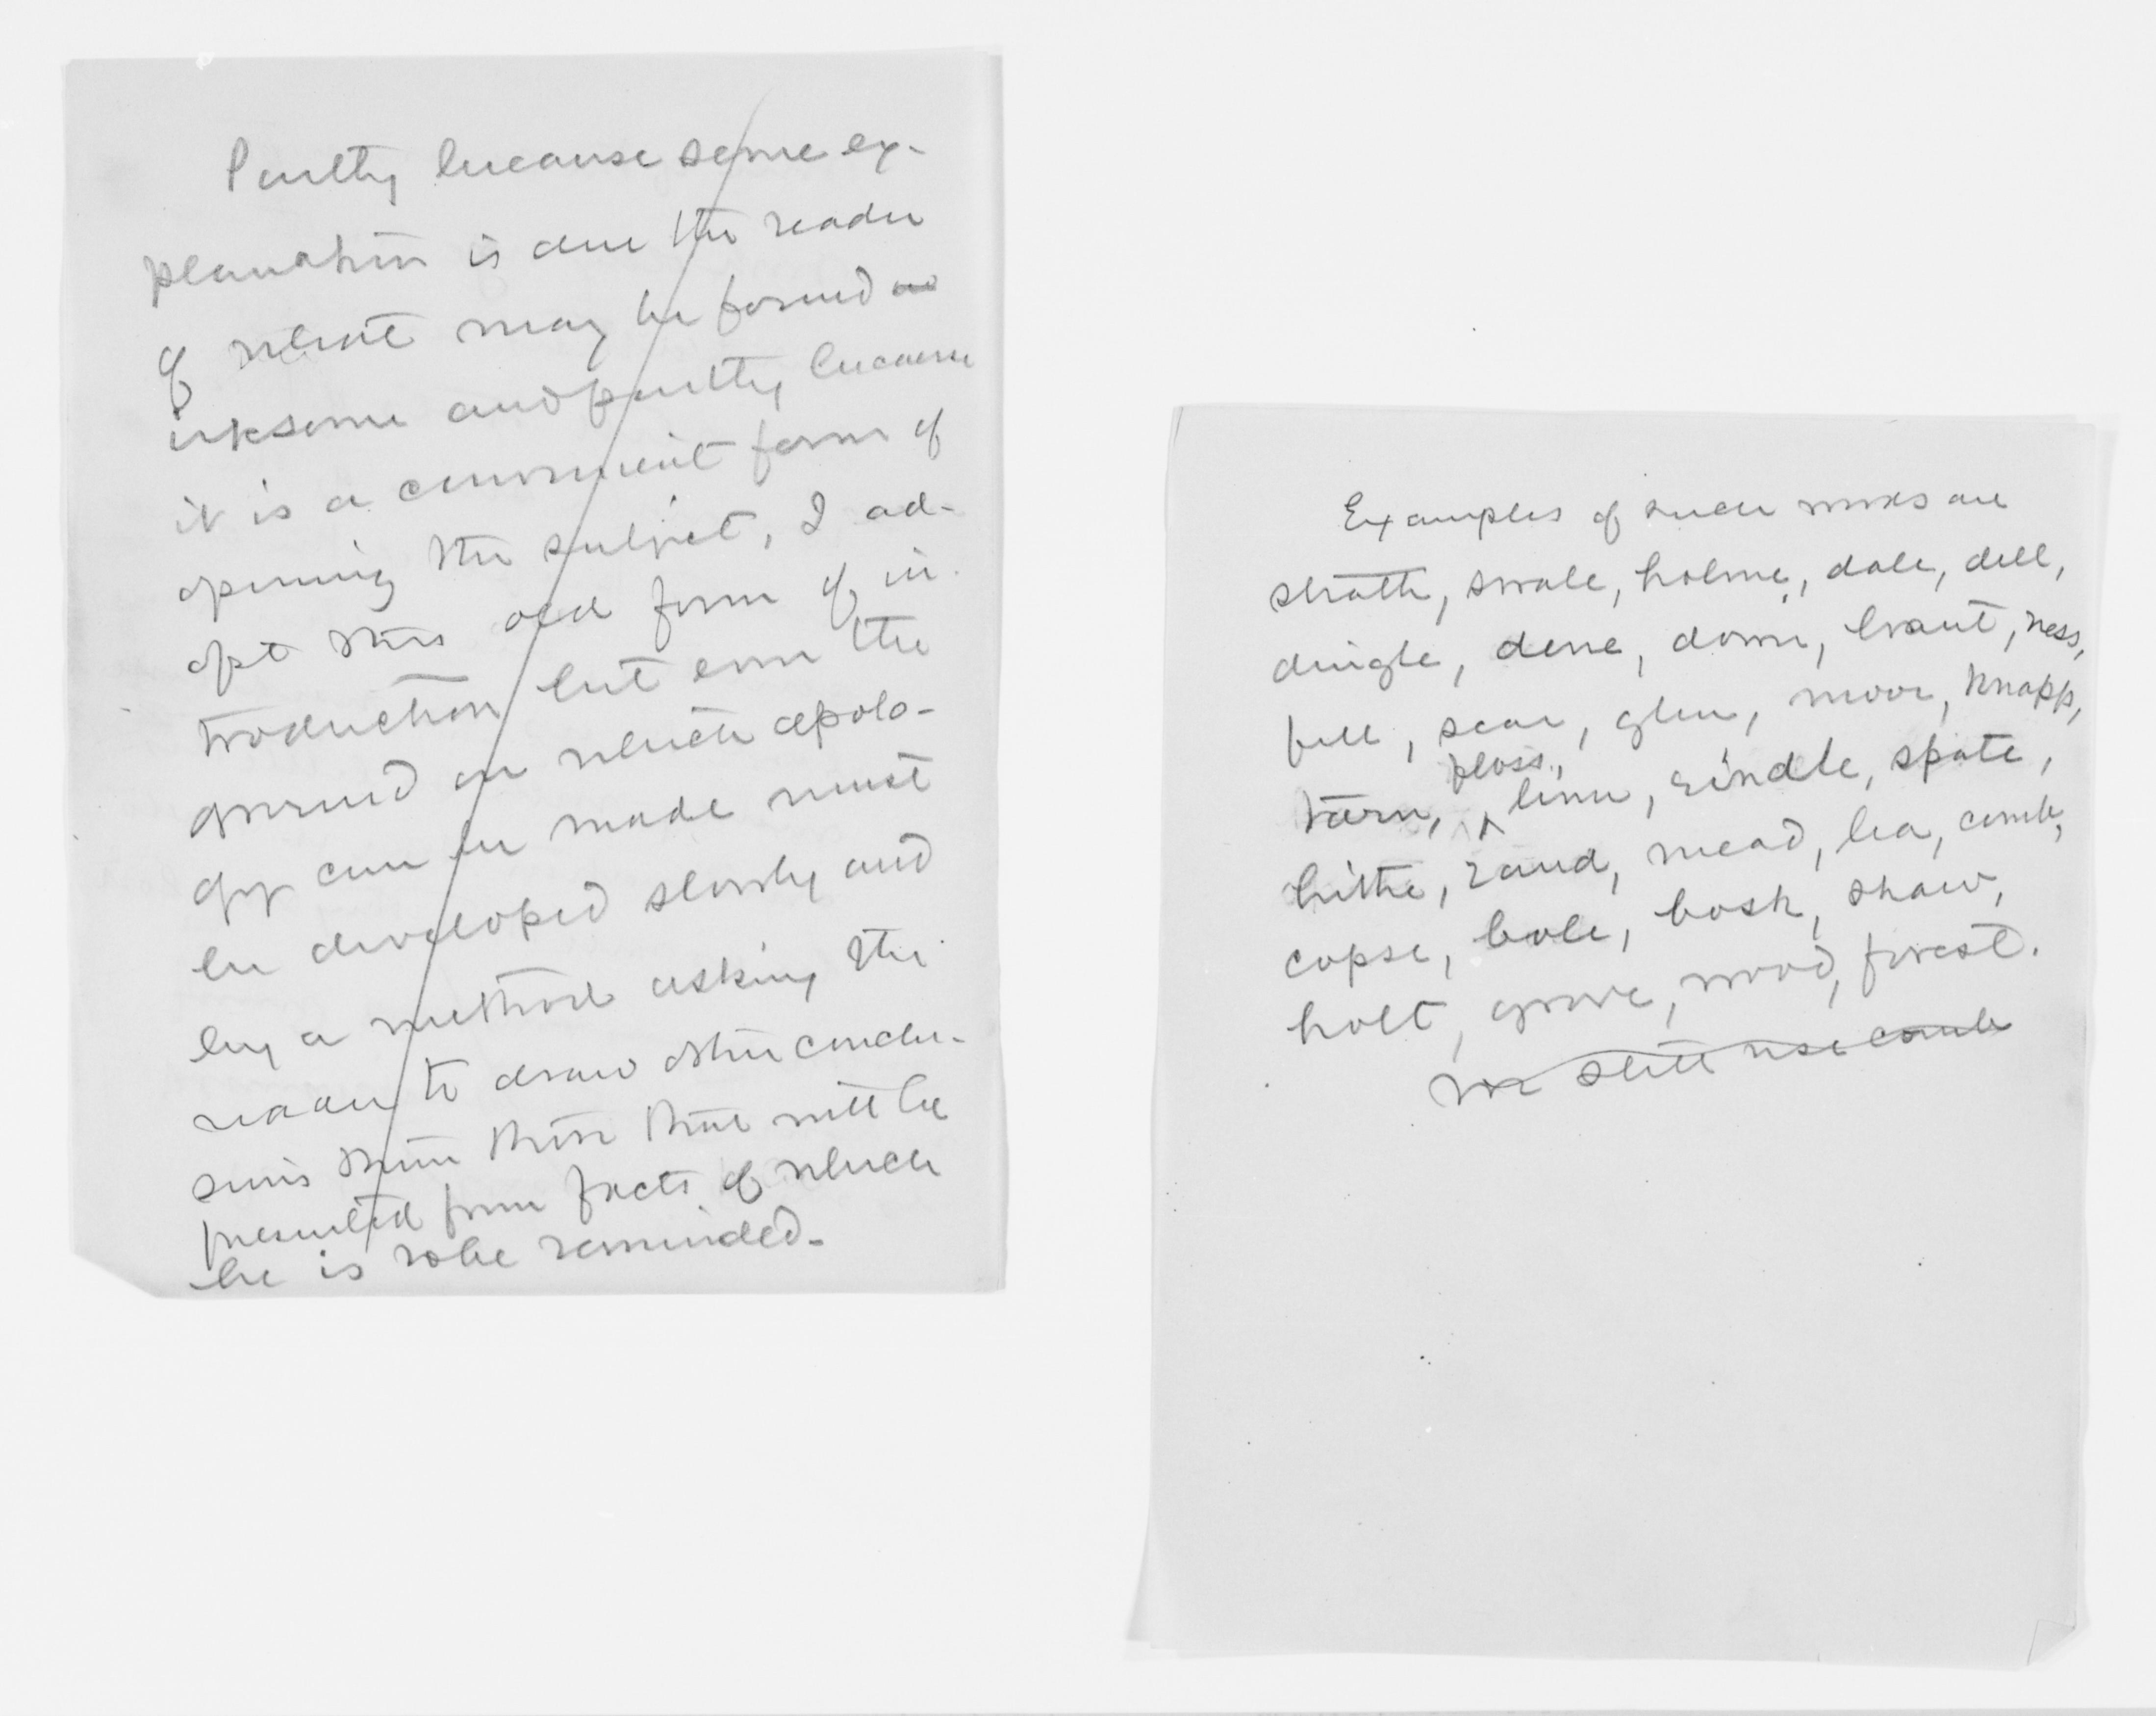 Partly because some ex-
planation is due the reader
of what may be found
irksome and partly because
it is a convenient form of
opening the subject, I ad-
opt this old form of in-
troduction but even the
ground on which apolo-
gy can be made must
be developed slowly and
by a method asking the
reader to draw other conclu-
sions than those that will be
presented from facts of which
he is to be reminded.
Examples of such words are
strath, swale, holme, dale, dell,
dingle, dene, down, ness,
fell, scar, glen, moor, knapp,
tarn, plass, linn, rindle, spate,
hithe, rand, mead, lea, comb,
copse, bole, bosk, shaw,
holt, grove, wood, forest.
We still use comb